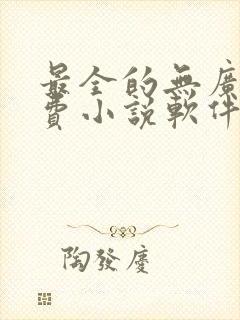 最全的無廣
費小説軟件
陶發慶